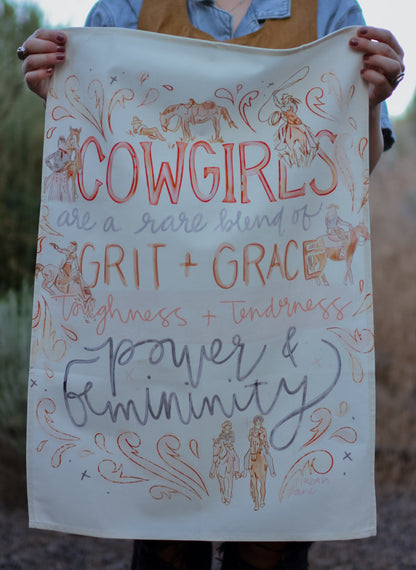 COWGIRLS
are a rare blend of
GRIT + GRACE
Toughness + Tenderness
power &
femininity